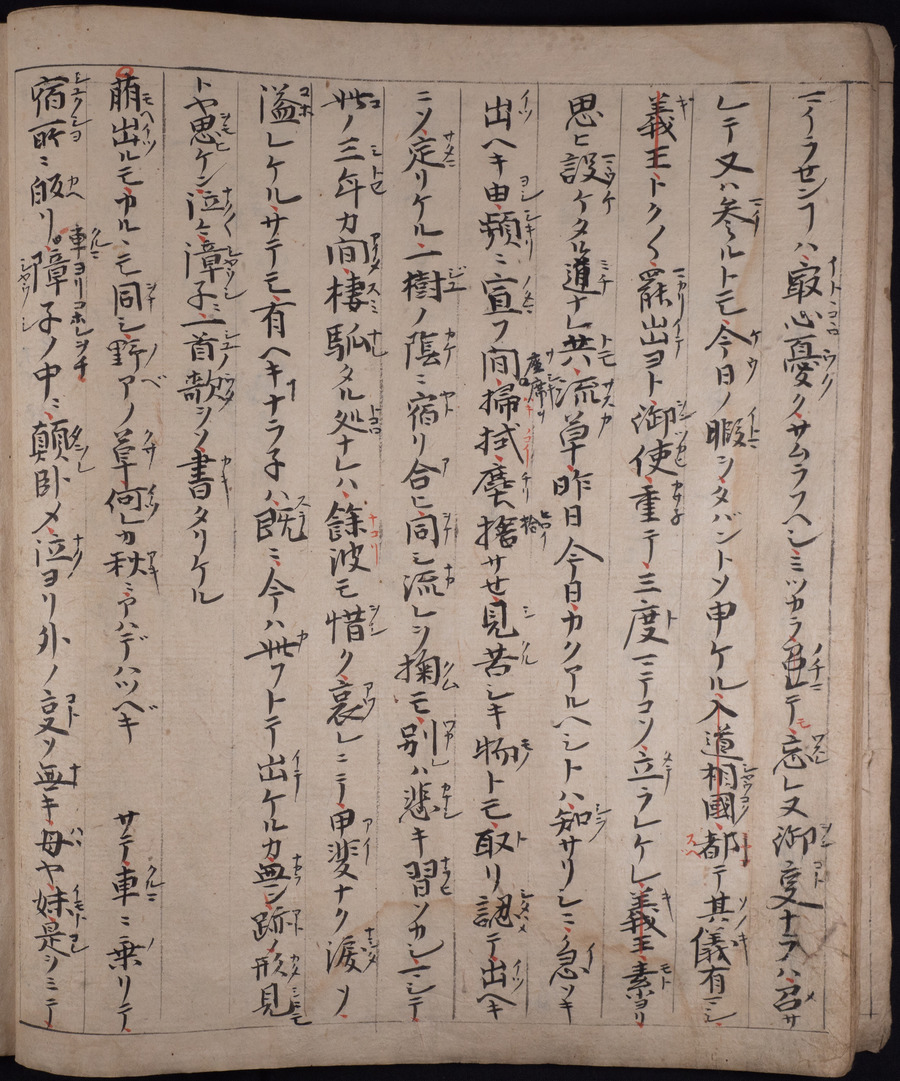 マイラセンコハ最心憂クサムラフヘシミツカラ召レテ忘レ又御変ナラハ召サ
レテ又ハ参ルトモ今日ノ暇シタバントソ申ケル入道相國都テ其儀有マシ
義王トク〱罷出ヨト御使重テ三度マテコソ立ラレケレ義王素ヨリ
思ヒ設ケタル道ナレ共流草昨日今日カクアルヘシトハ知サリシニ急ツキ
出ヘキ由頻ニ宣フ間掃拭塵捨サセ見苦シキ物トモ取リ認テ出ヘキ
ニソ定リケル一樹ノ陰ニ宿リ合ヒ同シ流レシ掬モ別ハ悲キ習ソカシマシテ
此ノ三年カ間棲馴タル処ナレハ餘波モ惜ク哀レニテ甲斐ナク涙ソ
溢レケルサテモ有ヘキナラ子ハ既ニ今ハ此フトテ出ケルカ無ン跡ノ形見
トヤ思ケン泣々障子ニ一首歌ソ書タリケル
萠出ルモカルヽモ同シ野アノ草何レカ秋ニアハデハツヘキ サテ車ニ乗リテ
宿所ニ皈リ障子ノ中ニ顛臥メ泣ヨリ外ノ変ソ無キ母ヤ妹是シミテ